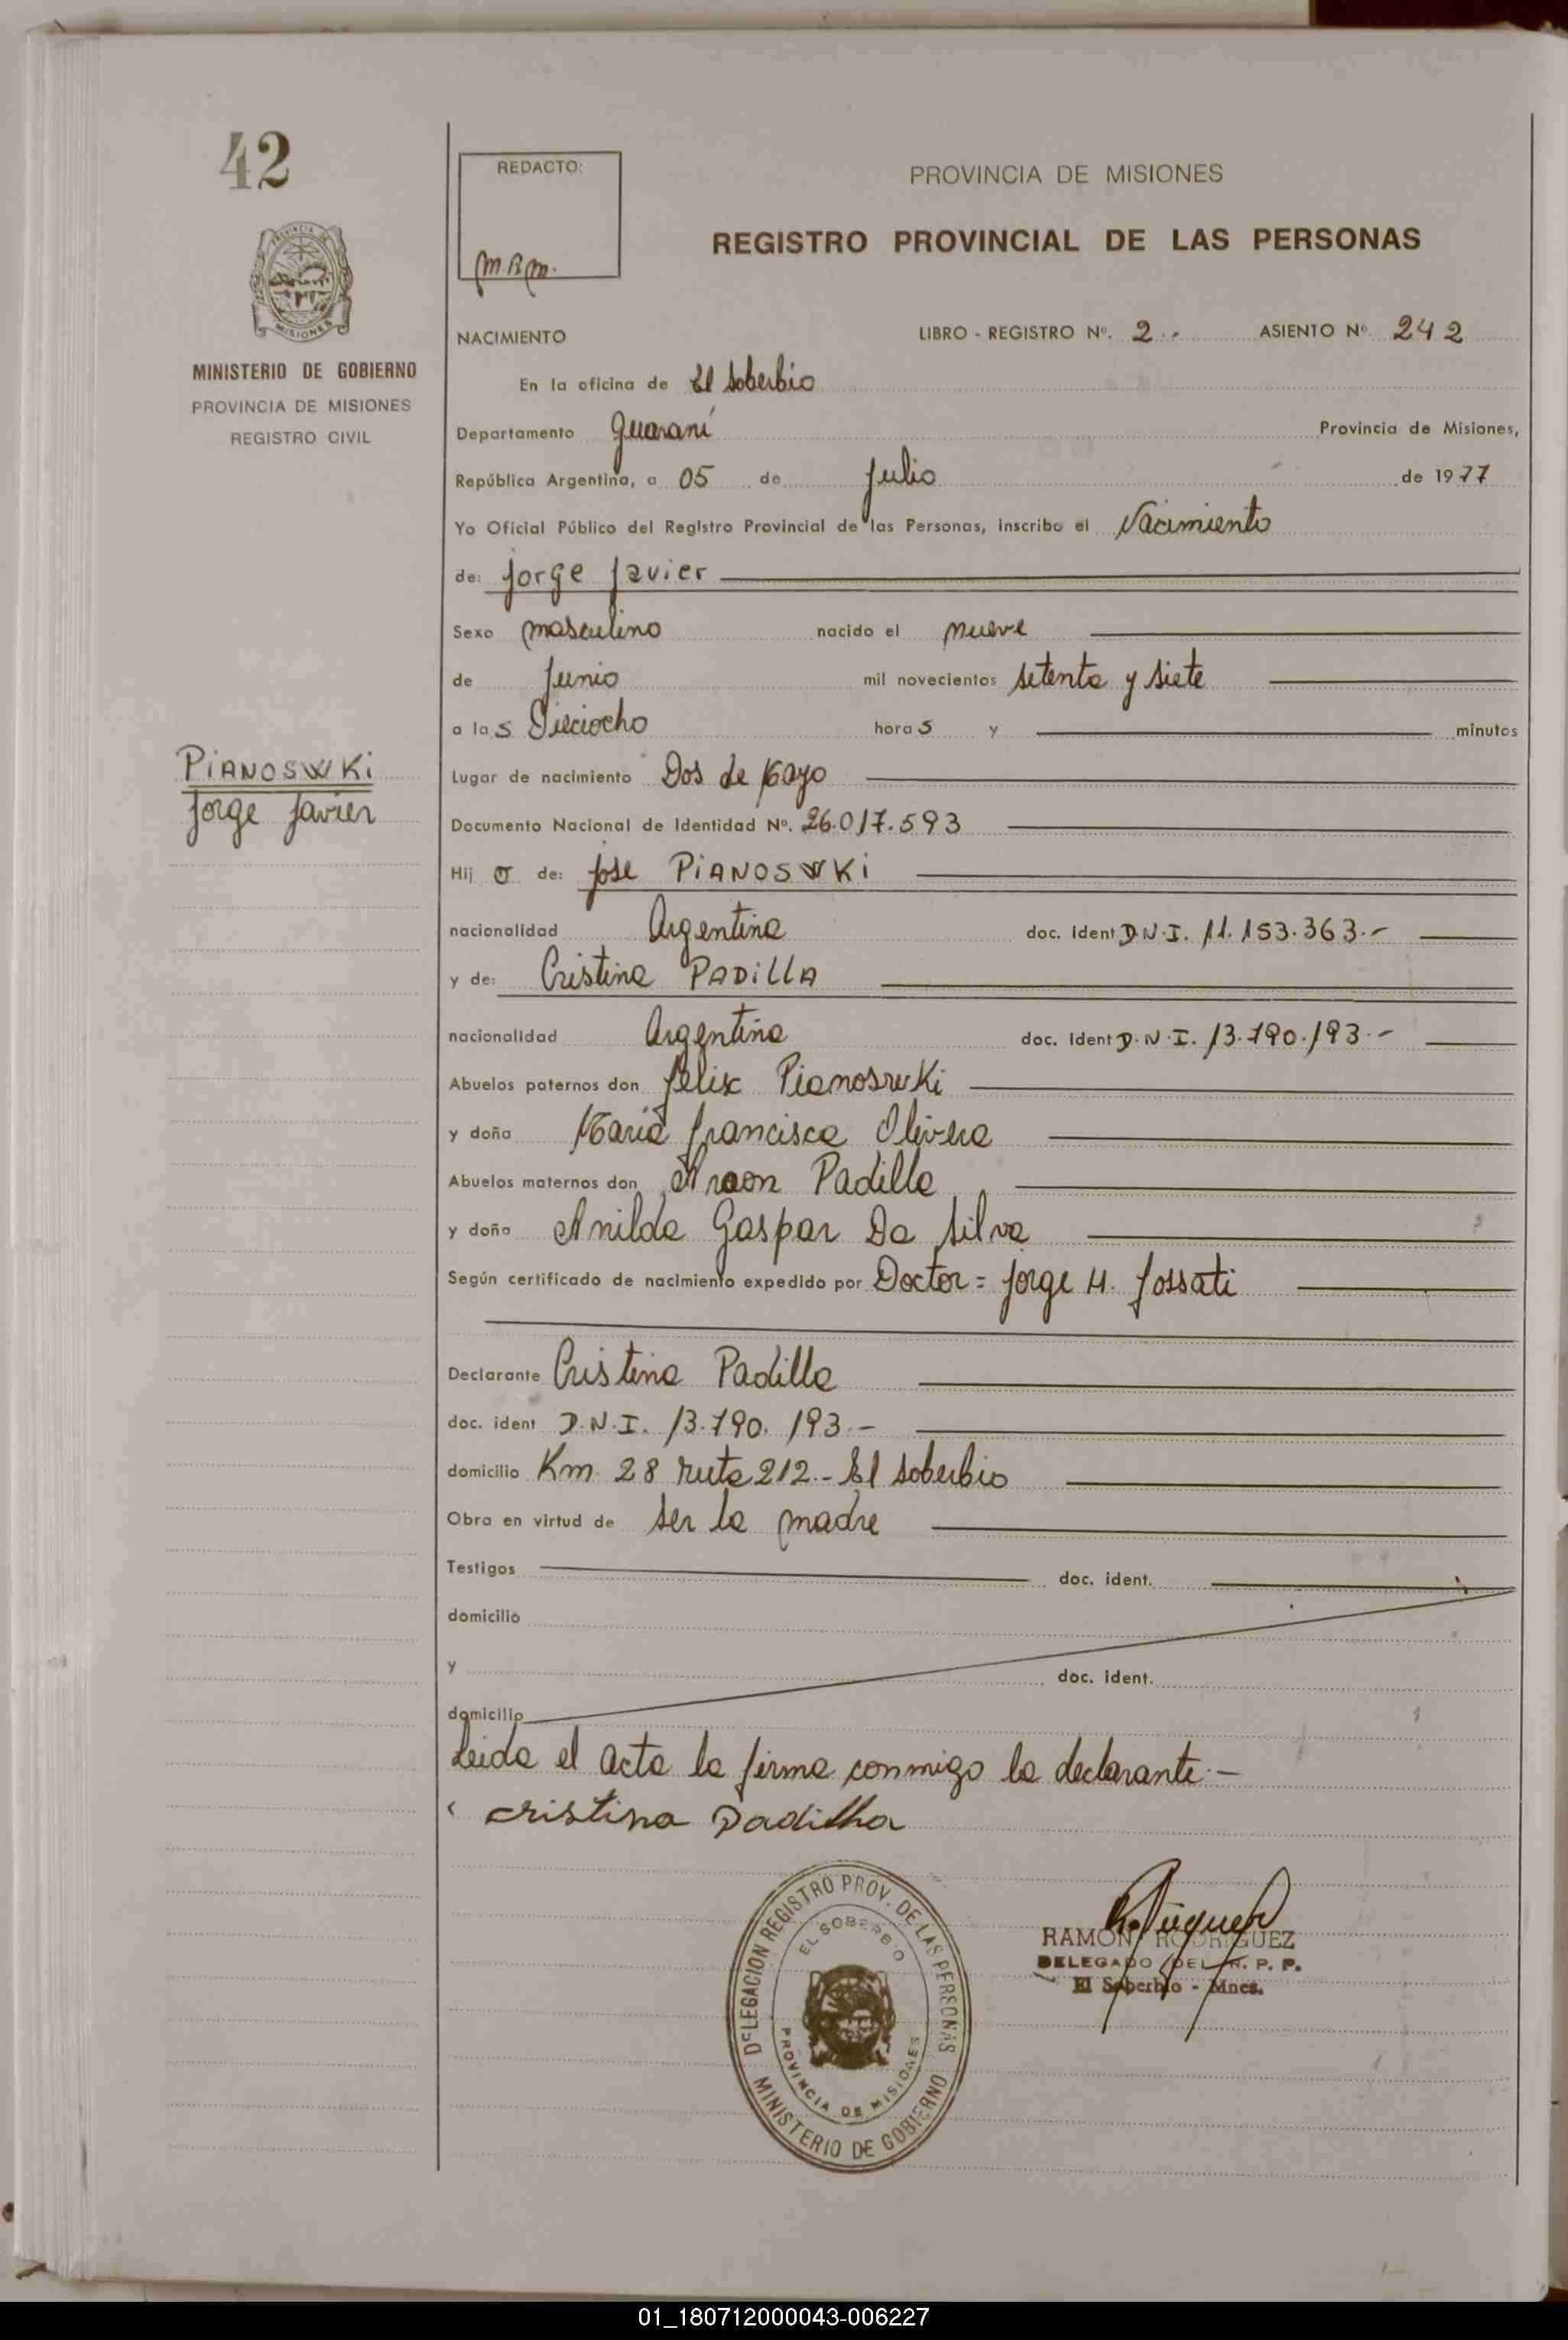 42
PROVINCIA DE MISIONES
MINISTERIO DE GOBIERNO
PROVINCIA DE MISIONES
REGISTRO CIVIL
PIANOSWKI
Jorge Javier
REDACTO:
M.R.M.
PROVINCIA DE MISIONES
REGISTRO PROVINCIAL DE LAS PERSONAS
NACIMIENTO LIBRO - REGISTRO Nº. 2.- ASIENTO Nº 242
En la oficina de El Soberbio
Departamento Guaraní Provincia de Misiones,
República Argentina, a 05 de Julio de 1977
Yo Oficial Público del Registro Provincial de las Personas, inscribo el Nacimiento
de: Jorge Javier
Sexo masculino nacido el nueve
de Junio mil novecientos setenta y siete
a las Dieciocho horas y minutos
Lugar de nacimiento Dos de Mayo
Documento Nacional de Identidad Nº. 26.017.593
Hijo de: Jose PIANOSWKI
nacionalidad Argentina doc. ident D.N.I. 11.153.363.-
y de: Cristina PADILLA
nacionalidad Argentina doc. ident D.N.I. 13.790.193.-
Abuelos paternos don Felix Pianoswki
y doña Maria Francisca Olivera
Abuelos maternos don Araon Padilla
y doña Anilda Gaspar Da Silva
Según certificado de nacimiento expedido por Doctor = Jorge H. Fossati
Declarante Cristina Padilla
doc. ident D.N.I. 13.790.193.-
domicilio Km. 28 ruta 212.- El Soberbio
Obra en virtud de ser la madre
Testigos doc. ident.
domicilio
y doc. ident.
domicilio
Leida el acta la firma conmigo la declarante.-
cristina Padilha
DELEGACION REGISTRO PROV. DE LAS PERSONAS
EL SOBERBIO
PROVINCIA DE MISIONES
MINISTERIO DE GOBIERNO
RAMON RODRIGUEZ
DELEGADO DEL R. P. P.
El Soberbio - Mnes.
01_180712000043-006227